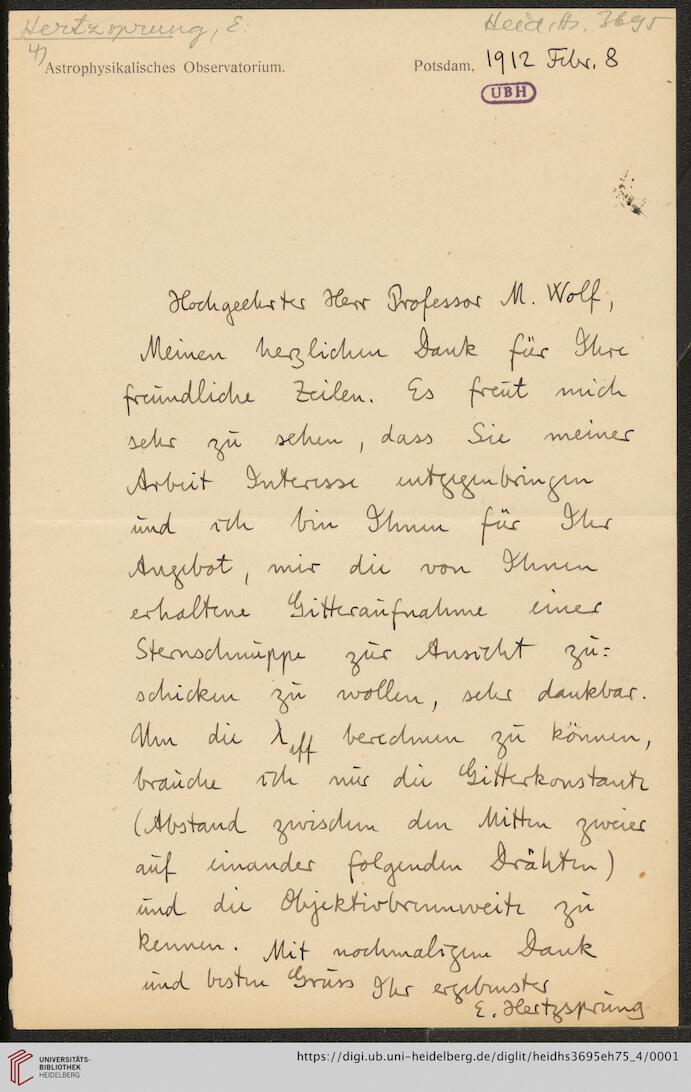 Hertzsprung, E.
Heid. Hs. 3695
4)
Astrophysikalisches Observatorium.
Potsdam, 1912 Febr. 8
UBH
Hochgeehrter Herr Professor M. Wolf,
Meinen herzlichen Dank für Ihre
freundliche Zeilen. Es freut mich
sehr zu sehen, dass Sie meiner
Arbeit Interesse entgegenbringen
und ich bin Ihnen für Ihr
Angebot, mir die von Ihnen
erhaltene Gitteraufnahme einer
Sternschnuppe zur Ansicht zu=
schicken zu wollen, sehr dankbar.
Um die λeff berechnen zu können,
brauche ich nur die Gitterkonstante
(Abstand zwischen den Mitten zweier
auf einander folgenden Drähten)
und die Objektivbrennweite zu
kennen. Mit nochmaligem Dank
und besten Gruss Ihr ergebenster
E. Hertzsprung
UNIVERSITÄTS-
BIBLIOTHEK
HEIDELBERG
https://digi.ub.uni-heidelberg.de/diglit/heidhs3695eh75_4/0001